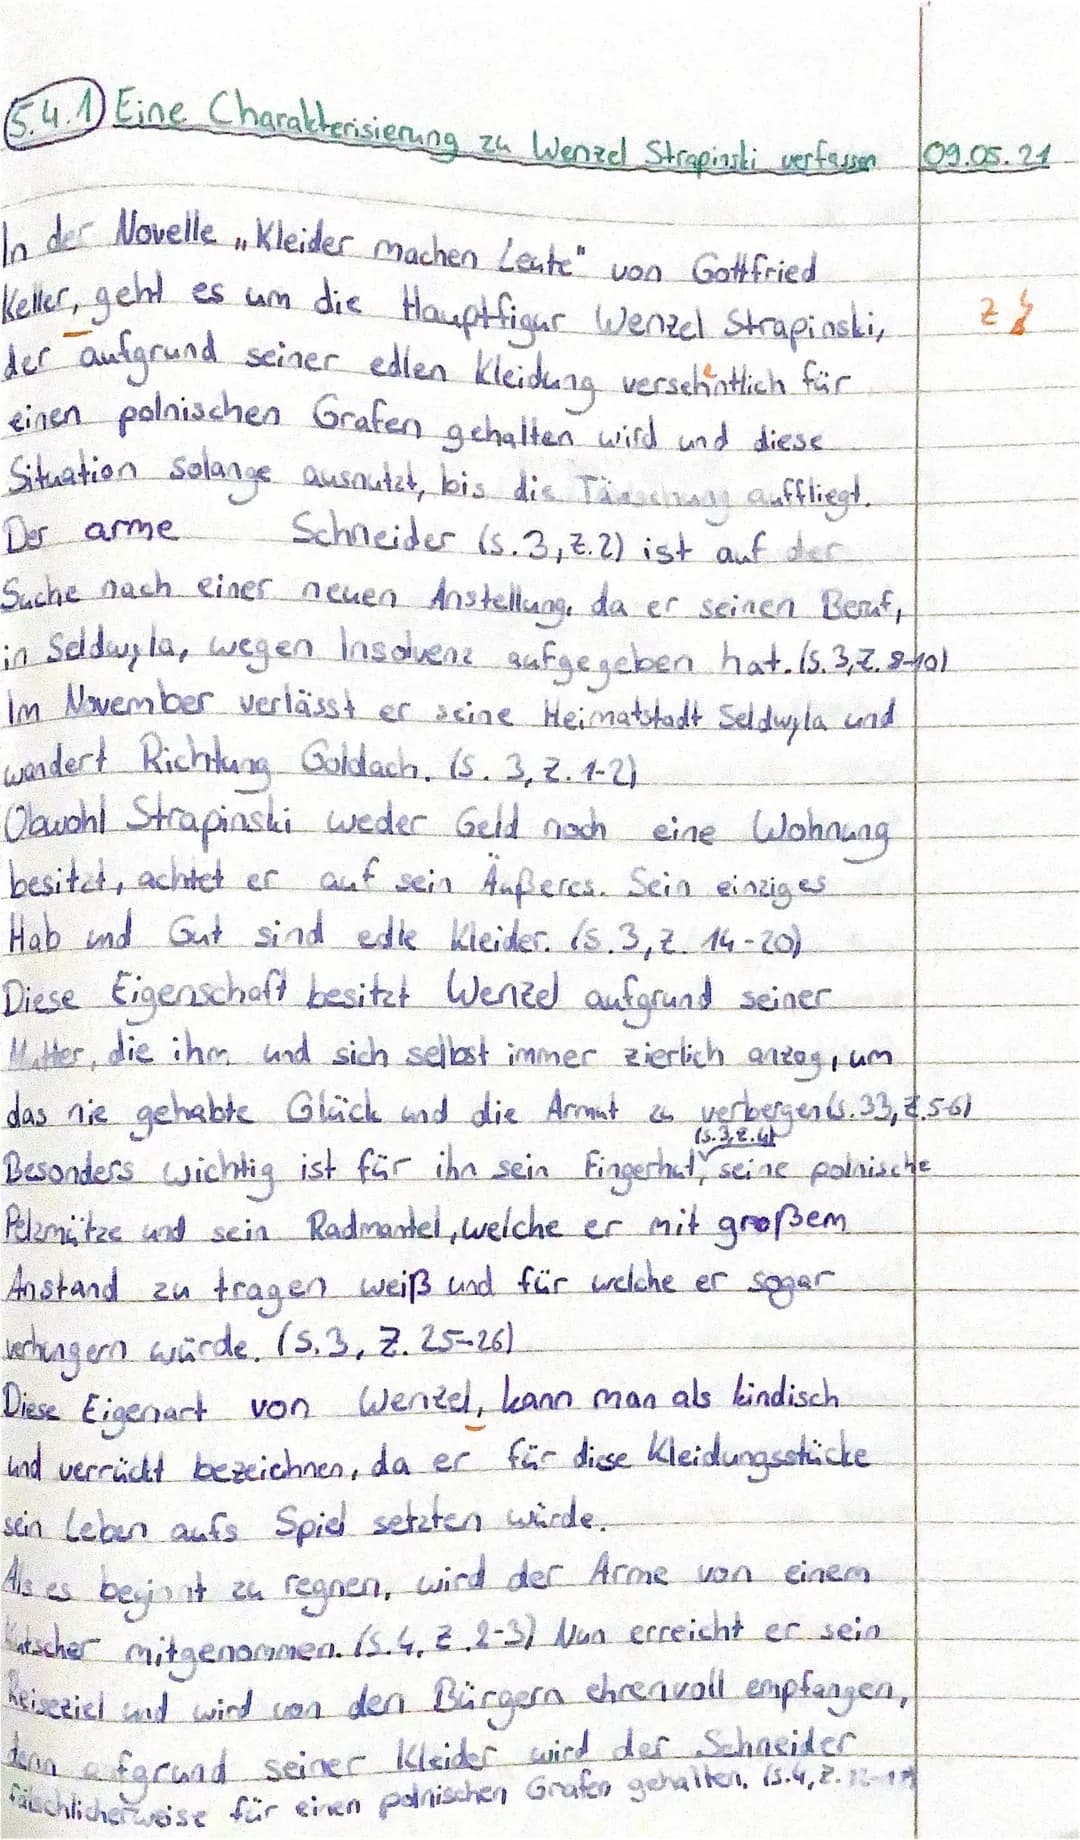 5.4.1) Eine Charakterisierung zu Wenzel Strapinski verfassen 09.05.21
In der Novelle „Kleider machen Leute" von Gottfried
Keller, geht es um die Hauptfigur Wenzel Strapinski, Z
der aufgrund seiner edlen Kleidung versehntlich für
einen polnischen Grafen gehalten wird und diese
Situation solange ausnutzt, bis die Täuschung auffliegt.
Der arme Schneider (S.3, Z.2) ist auf der
Suche nach einer neuen Anstellung, da er seinen Beruf,
in Seldwyla, wegen Insolvenz aufgegeben hat. (S.3, Z. 8-10)
Im November verlässt er seine Heimatstadt Seldwyla und
wandert Richtung Goldach. (S. 3, Z. 1-2)
Obwohl Strapinski weder Geld noch eine Wohnung
besitzt, achtet er auf sein Äußeres. Sein einziges
Hab und Gut sind edle Kleider. (S.3, Z. 14-20)
Diese Eigenschaft besitzt Wenzel aufgrund seiner
Mutter, die ihn und sich selbst immer zierlich anzog, um
das nie gehabte Glück und die Armut zu verbergen (S.33, Z.5-6)
(S.3, Z.4)
Besonders wichtig ist für ihn sein Fingerhut, seine polnische
Pelzmütze und sein Radmantel, welche er mit großem
Anstand zu tragen weiß und für welche er sogar
verhungern würde. (S.3, Z. 25-26)
Diese Eigenart von Wenzel, kann man als kindisch
und verrückt bezeichnen, da er für diese Kleidungsstücke
sein Leben aufs Spiel setzten würde.
Als es beginnt zu regnen, wird der Arme von einem
Kutscher mitgenommen. (S.4, Z.2-3) Nun erreicht er sein
Reiseziel und wird von den Bürgern ehrenvoll empfangen,
denn aufgrund seiner Kleider wird der Schneider
fälschlicherweise für einen polnischen Grafen gehalten. (S.4, Z.